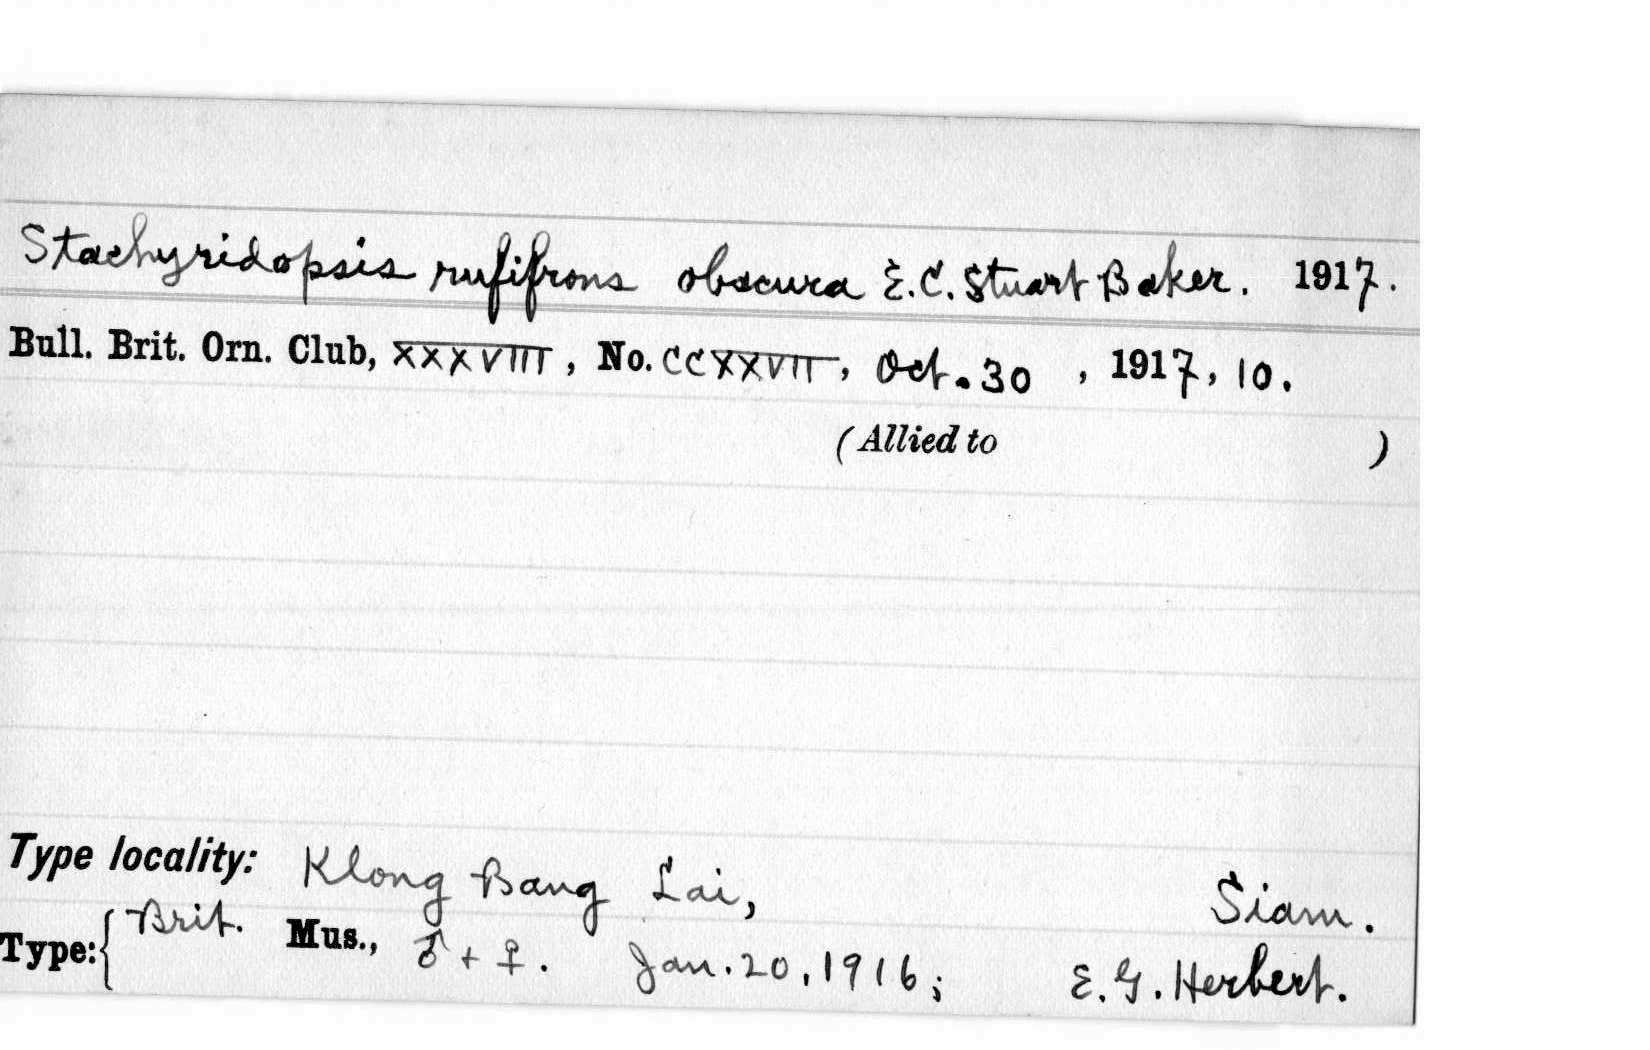 Stachyridopsis rufifrons obscura E.C. Stuart Baker. 1917.
Bull. Brit. Orn. Club, XXXVIII, No. CCXXVII, Oct. 30, 1917, 10.
(Allied to )
Type locality: Klong Bang Lai, Siam.
Type: { Brit. Mus., ♂ + ♀. Jan. 20, 1916; E. G. Herbert.